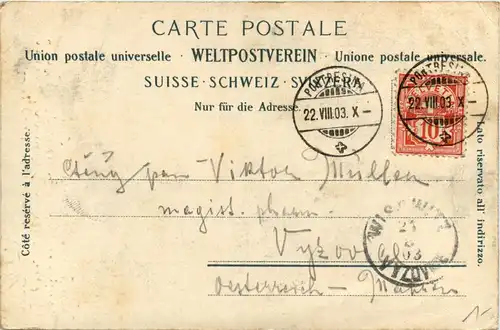 CARTE POSTALE
Union postale universelle · WELTPOSTVEREIN · Unione postale universale.
SUISSE · SCHWEIZ · SVIZZERA
Nur für die Adresse.
PONTRESINA
22.VIII.03. X–
PONTRESINA
22.VIII.03. X–
10
Côté réservé à l'adresse.
Lato riservato all' indirizzo.
pan Viktor Müller
magist. pharm.
Oesterreich - Mähren